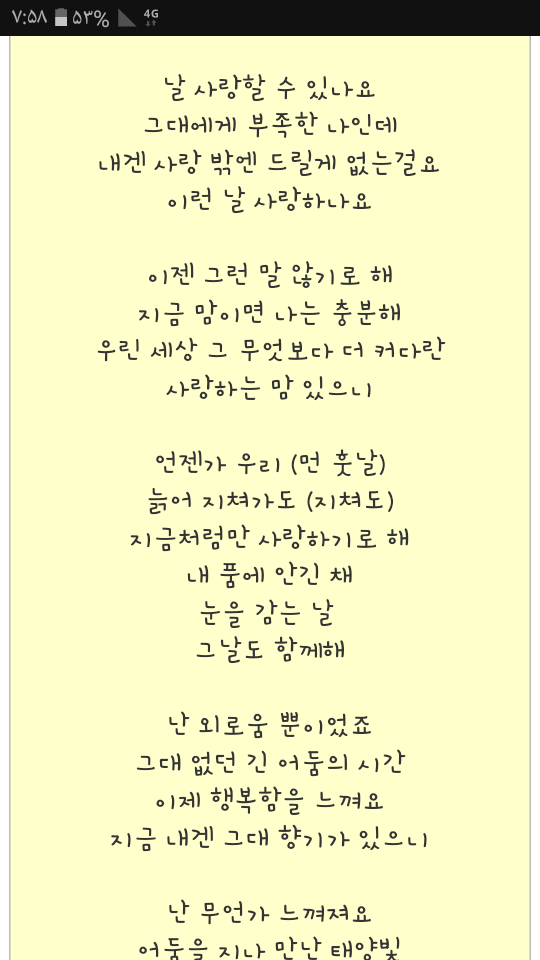 ۷:۵۸ ۵۳% 4G
날 사랑할 수 있나요
그대에게 부족한 나인데
내겐 사랑 밖엔 드릴게 없는걸요
이런 날 사랑하나요
이젠 그런 말 않기로 해
지금 맘이면 나는 충분해
우린 세상 그 무엇보다 더 커다란
사랑하는 맘 있으니
언젠가 우리 (먼 훗날)
늙어 지쳐가도 (지쳐도)
지금처럼만 사랑하기로 해
내 품에 안긴 채
눈을 감는 날
그날도 함께해
난 외로움 뿐이었죠
그대 없던 긴 어둠의 시간
이제 행복함을 느껴요
지금 내겐 그대 향기가 있으니
난 무언가 느껴져요
어둠을 지나 만난 태양빛